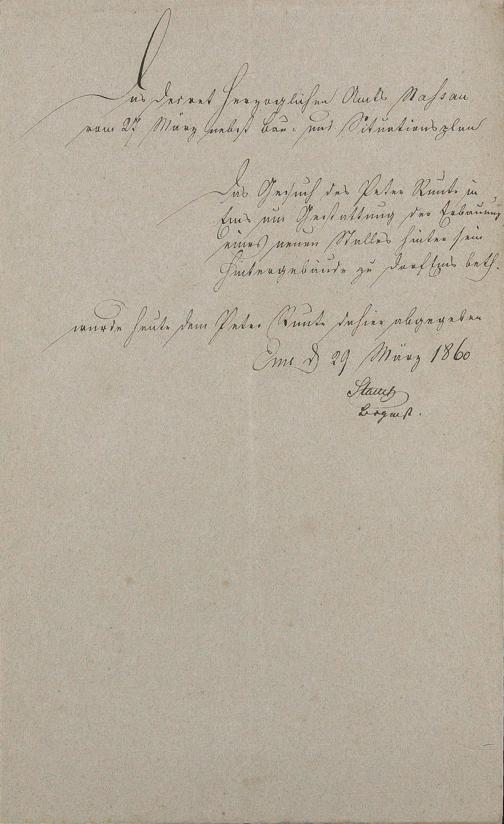 Das Decret Herzoglichen Amts Nassau
vom 27 März nebst Bau- und Situationsplan
Das Gesuch des Peter Runte in
Ems um Gestattung der Erbauung
eines neuen Stalles hinter sein
Hintergebäude zu Dorf Ems betr.
wurde heute dem Peter Runte dahier abgegeben
Ems d 29 März 1860
Brgmst.